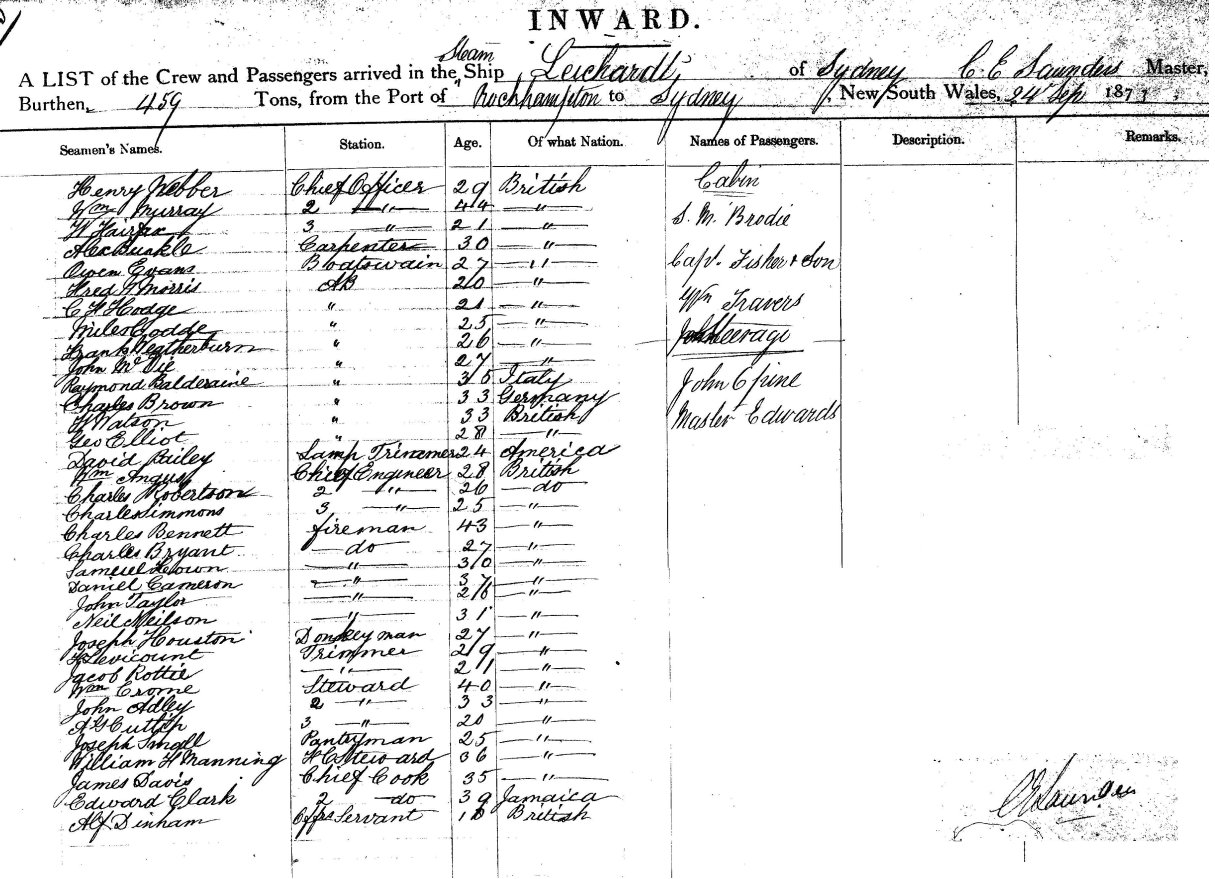 INWARD.
Steam
A LIST of the Crew and Passengers arrived in the Ship Leichardt, of Sydney C. E. Saunders Master,
Burthen, 459 Tons, from the Port of Rockhampton to Sydney, New South Wales, 24 Sep 187
Seamen's Names. Station. Age. Of what Nation. Names of Passengers. Description. Remarks.
Henry Webber Chief Officer 29 British Cabin
Wm Murray 2 —"— 44 —"— S. M. Brodie
W Fairfax 3 —"— 21 —"—
Alex Buckle Carpenter 30 —"—
Owen Evans Boatswain 27 —"— Capt. Fisher & Son
Fred Morris AB 20 —"—
C F Hodge " 21 —"— Wm Travers
Miles Dodde " 25 —"—
Frank Weatherburn " 26 —"— Steerage
John McVie " 27 —"—
Raymond Balderaine " 35 Italy John Cpine
Charles Brown " 33 Germany
Watson " 33 British Master Edwards
Geo Elliot " 28 —"—
David Bailey Lamp Trimmer 24 America
Wm Angus Chief Engineer 28 British
Charles Robertson 2 —"— 26 —do
Charles Simmons 3 —"— 25 —"—
Charles Bennett fireman 43 —"—
Charles Bryant —do 27 —"—
Samuel —"— 30 —"—
Daniel Cameron —"— 37 —"—
John Taylor —"— 26 —"—
Neil Neilson —"— 31 —"—
Joseph Houston Donkeyman 27 —"—
Levicount Trimmer 29 —"—
Jacob Rottie —"— 21 —"—
Wm Crome Steward 40 —"—
John Adley 2 —"— 33 —"—
A G Cuttip 3 —"— 20 —"—
Joseph Small Pantryman 25 —"—
William H Manning Steward 36 —"—
James Davis Chief Cook 35 —"—
Edward Clark 2 —do 39 Jamaica
Alf Dinham Offrs Servant 18 British
C E Saunders